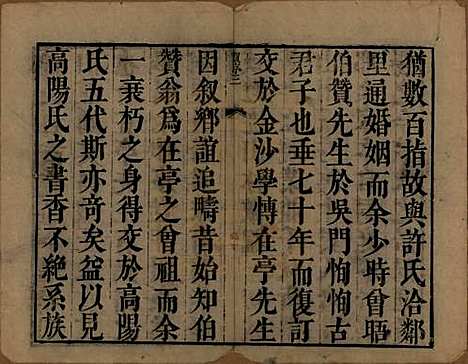 猶數百指故與許氏洽鄰
里通婚姻而余少時曾晤
伯贊先生於吳門恂恂古
君子也垂七十年而復訂
交於金沙學博在亭先生
因叙鄉誼追疇昔始知伯
贊翁爲在亭之曾祖而余
一衰朽之身得交於高陽
氏五代斯亦竒矣益以見
高陽氏之書香不絶系族